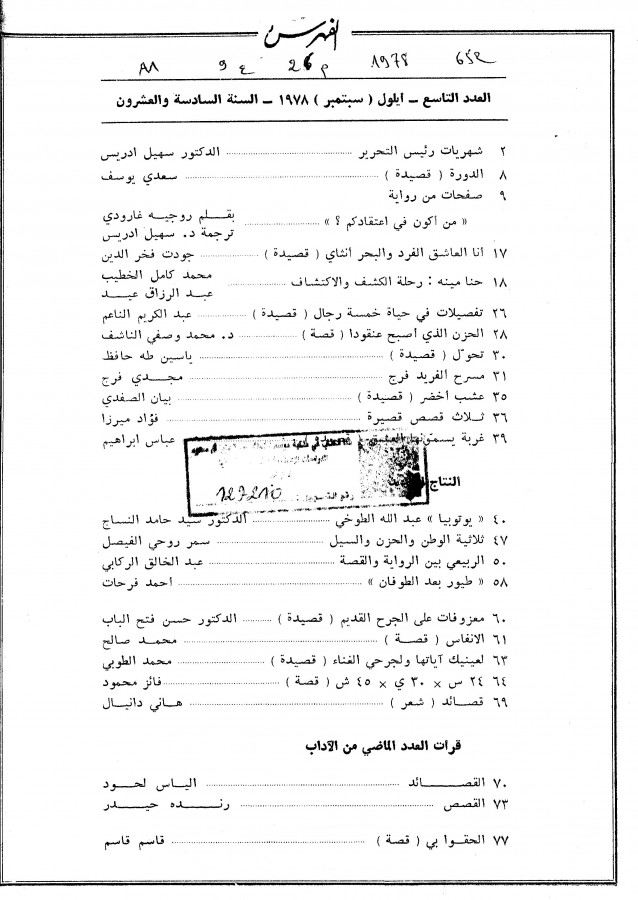 الفهرس
٨٨ ع 9 م 26 1978 652
العدد التاسع – ايلول ( سبتمبر ) ١٩٧٨ – السنة السادسة والعشرون
٢ شهريات رئيس التحرير ........ الدكتور سهيل ادريس
٨ الدورة ( قصيدة ) ........ سعدي يوسف
٩ صفحات من رواية
« من أكون في اعتقادكم ؟ » ........ بقــلم روجيـه غارودي
ترجمة د. سهيل ادريس
١٧ انا العاشق الفرد والبحر انثاي ( قصيدة ) ........ جودت فخر الدين
١٨ حنا مينه : رحلة الكشف والاكتشاف ........ محمد كامل الخطيب
عبـد الرزاق عيــد
٢٦ تفصيلات في حياة خمسة رجال ( قصيدة ) ........ عبد الكريم الناعم
٢٨ الحزن الذي أصبح عنقودا ( قصة ) ........ د. محمد وصفي الناشف
٣٠ تحوّل ( قصيدة ) ........ ياسين طه حافظ
٣١ مسرح الفريد فرج ........ مجــدي فرج
٣٥ عشب اخضر ( قصيدة ) ........ بيان الصفدي
٣٦ ثــلاث قصص قصيرة ........ فؤاد ميرزا
٣٩ غربة ........ عباس ابراهيم
النتاج
رقم التسجيل : 127210
٤٠ « يوتوبيا » عبد الله الطوخي ........ الدكتور سيد حامد النساج
٤٧ ثلاثية الوطن والحزن والسيل ........ سمر روحي الفيصل
٥٠ الربيعي بين الرواية والقصة ........ عبد الخالق الركابي
٥٨ « طيور بعد الطوفان » ........ احمد فرحات
٦٠ معزوفات على الجرح القديم ( قصيدة ) ........ الدكتور حسن فتح الباب
٦١ الانفاس ( قصــة ) ........ محمـد صالح
٦٣ لعينيك آياتها ولجرحي الغناء ( قصيدة ) ........ محمد الطوبي
٦٤ ٢٤ س × ٣٠ ي × ٤٥ ش ( قصة ) ........ فائز محمود
٦٩ قصــائد ( شعر ) ........ هــاني دانيـال
قرات العدد الماضي من الآداب
٧٠ القصــــائد ........ الياس لحود
٧٣ القصص ........ رنــده حيــدر
٧٧ الحقــوا بي ( قصة ) ........ قاسم قاسم